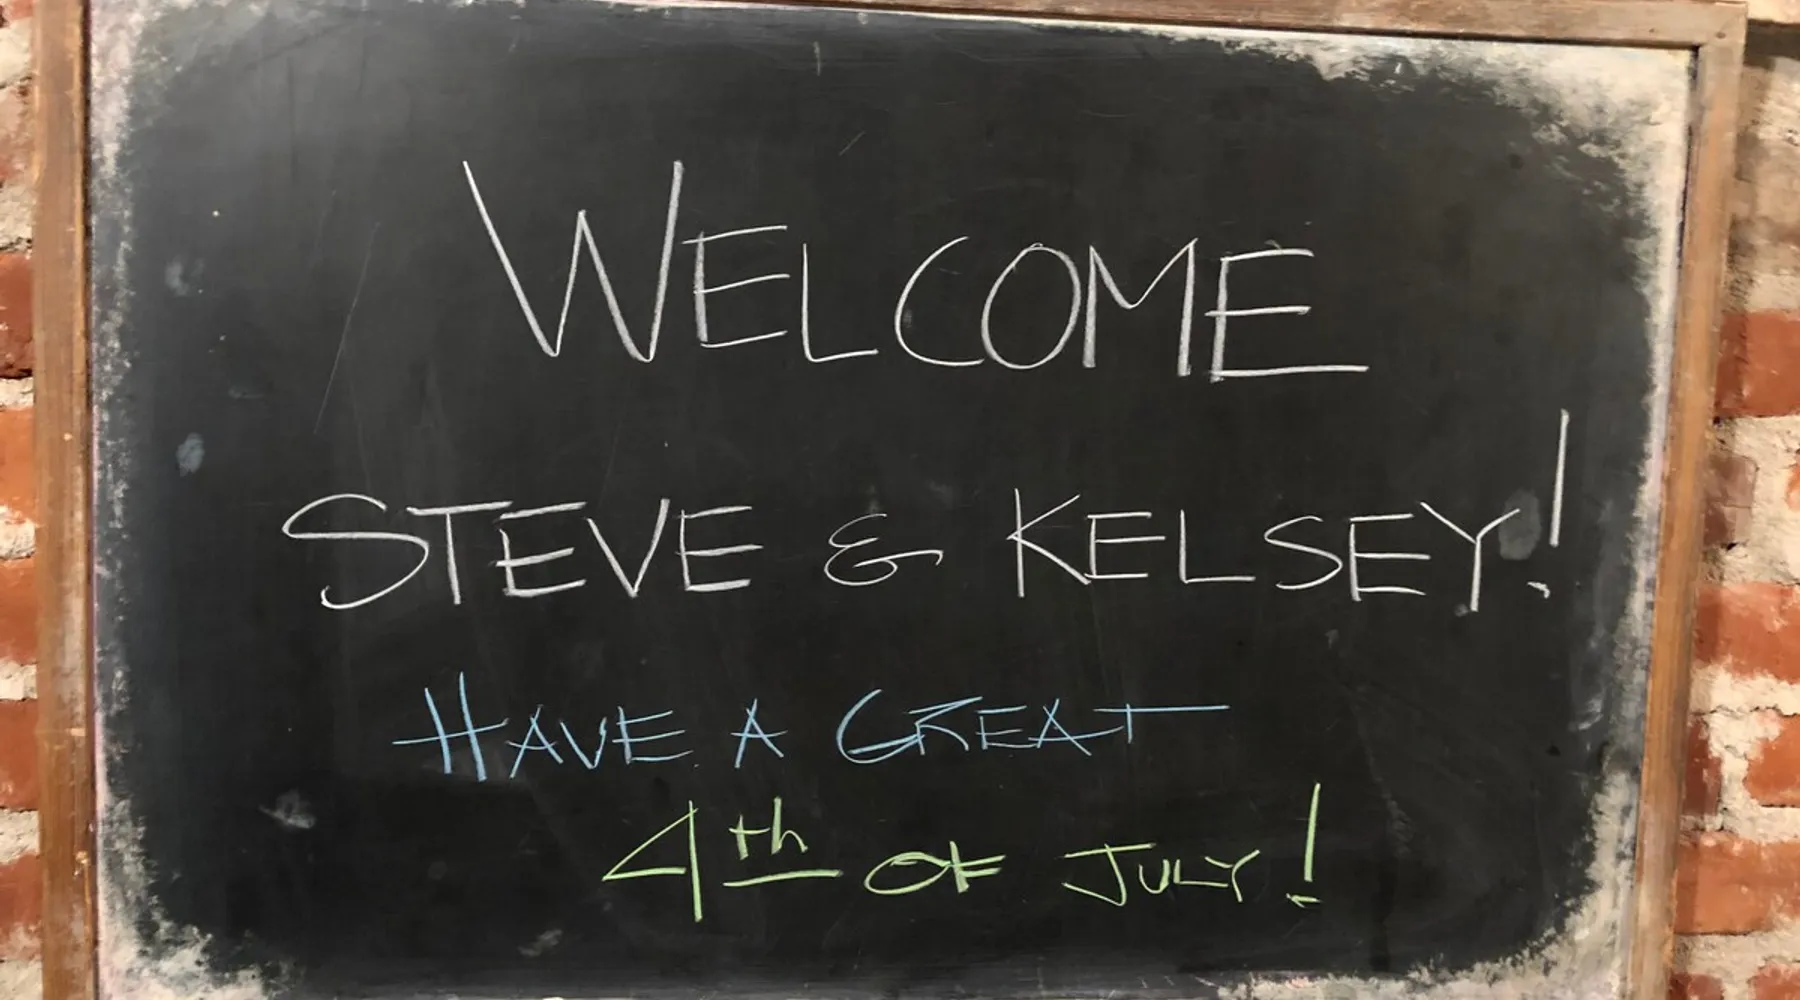 WELCOME
STEVE & KELSEY!
HAVE A GREAT
4th OF JULY!